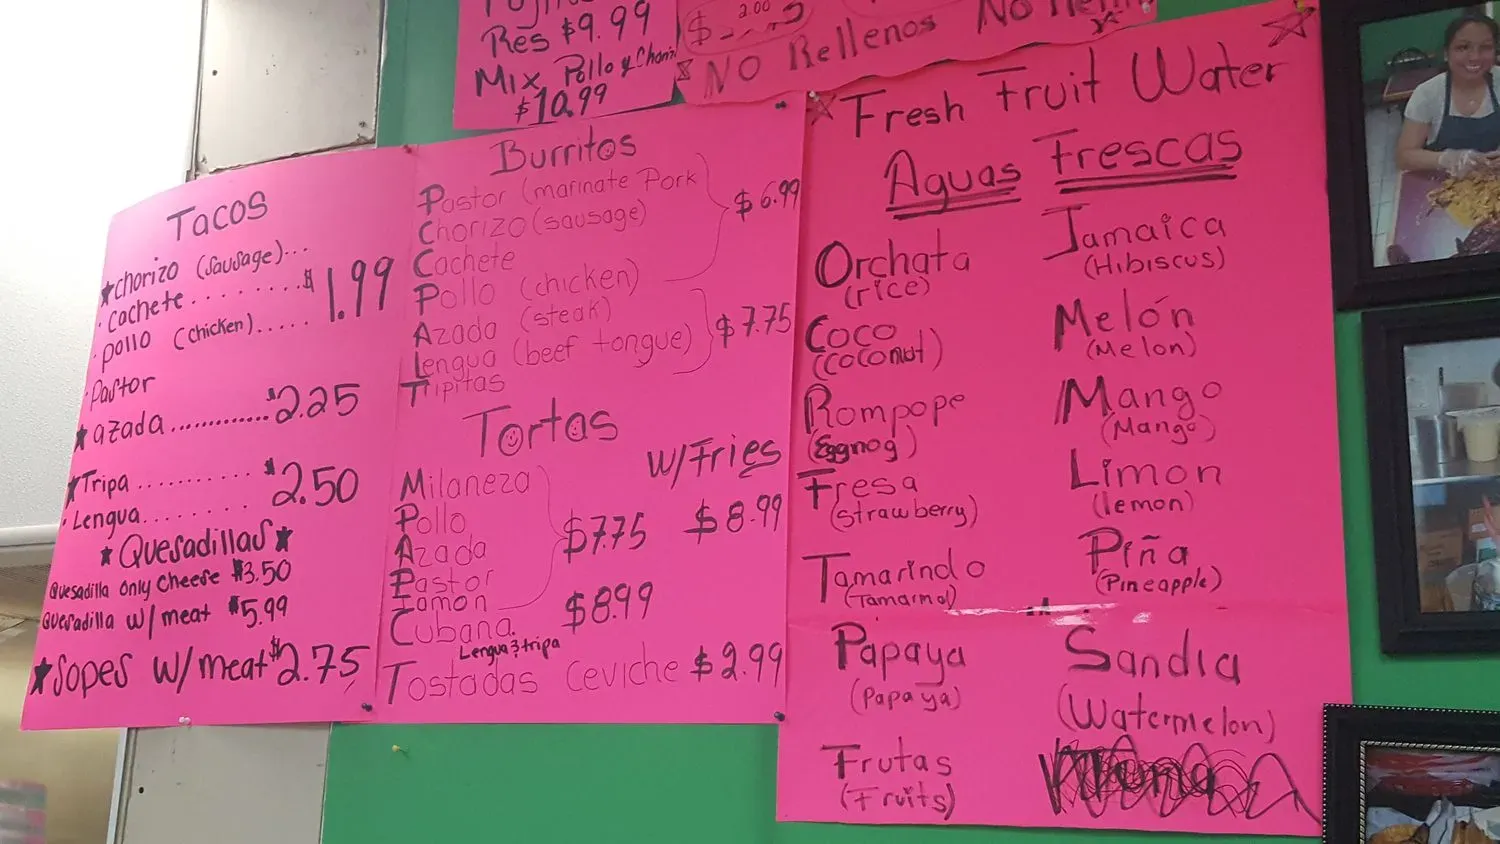 Res $9.99
Mix Pollo y Choriz
$10.99
$ 2.00
NO Rellenos No Relle
Tacos
chorizo (sausage)...
cachete........ $1.99
pollo (chicken).....
Pastor
azada............$2.25
Tripa.......... $2.50
Lengua........
Quesadillas
Quesadilla only cheese $3.50
Quesadilla w/ meat $5.99
Sopes w/meat $2.75
Burritos
Pastor (marinate Pork
Chorizo (sausage)
Cachete
$6.99
Pollo (chicken)
Azada (steak)
Lengua (beef tongue)
Tripitas
$7.75
Tortas
w/Fries
Milaneza
Pollo
Azada
Pastor
Jamon
$7.75 $8.99
Cubana $8.99
Lengua & tripa
Tostadas Ceviche $2.99
Fresh Fruit Water
Aguas Frescas
Orchata
(rice)
Coco
(coconut)
Rompope
(Eggnog)
Fresa
(strawberry)
Tamarindo
Papaya
(Papaya)
Frutas
(Fruits)
Jamaica
(Hibiscus)
Melón
(Melon)
Mango
(Mango)
Limon
(lemon)
Piña
(Pineapple)
Sandia
(Watermelon)